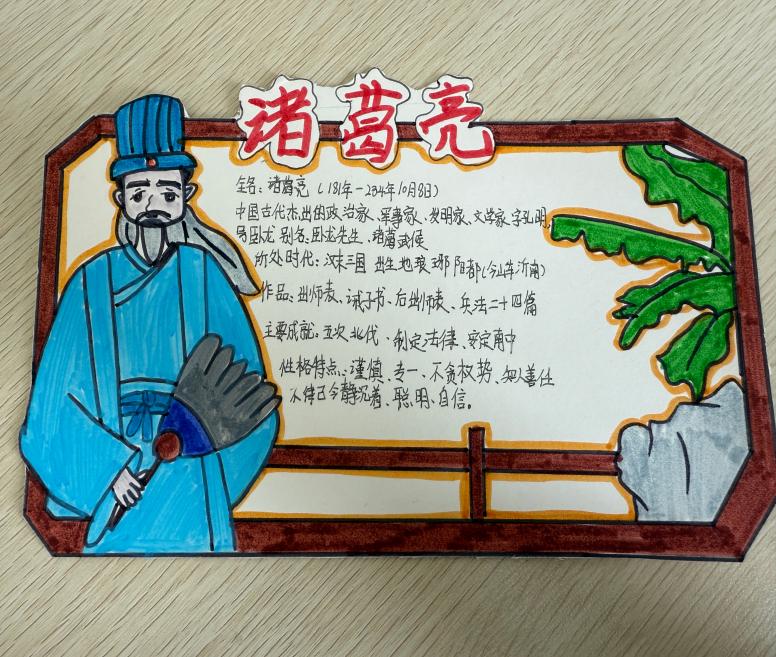 诸葛亮
全名：诸葛亮（181年－234年10月8日）
中国古代杰出的政治家、军事家、发明家、文学家，字孔明，
号卧龙 别名：卧龙先生、诸葛武侯
所处时代：汉末三国 出生地琅琊阳都（今山东沂南）
作品：出师表、诫子书、后出师表、兵法二十四篇
主要成就：五次北伐、制定法律、安定南中
性格特点：谨慎、专一、不贪权势、知人善任
律己 沉着、聪明、自信。